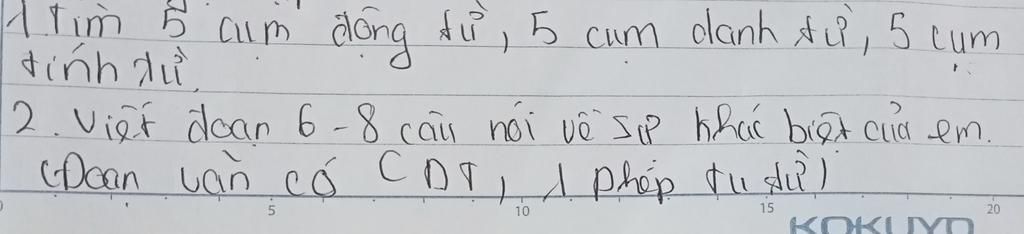 1 Tìm 5 cụm động từ, 5 cụm danh từ, 5 cụm
tính từ.
2. Viết đoạn 6-8 câu nói về sự khác biệt của em.
(Đoạn văn có CDT, 1 phép tu từ)
5 10 15 20
KOKUYO